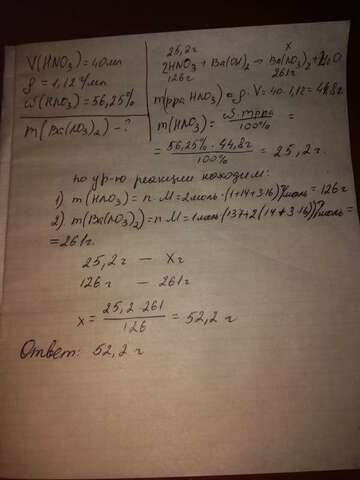 V(HNO₃) = 40 мл
ρ = 1,12 г/мл
ω(HNO₃) = 56,25%
m(Ba(NO₃)₂) - ?
25,2 г x
2HNO₃ + Ba(OH)₂ → Ba(NO₃)₂ + H₂O
126 г 261 г
m(рра HNO₃) = ρ · V = 40 · 1,12 = 44,8 г
m(HNO₃) = ω · mрра / 100% =
= 56,25% · 44,8 г / 100% = 25,2 г.
по ур-ю реакции находим:
1) m(HNO₃) = n · M = 2 моль · (1+14+3·16) г/моль = 126 г
2) m(Ba(NO₃)₂) = n · M = 1 моль (137+2(14+3·16)) г/моль =
= 261 г.
25,2 г — x г
126 г — 261 г
x = 25,2 · 261 / 126 = 52,2 г
Ответ: 52,2 г